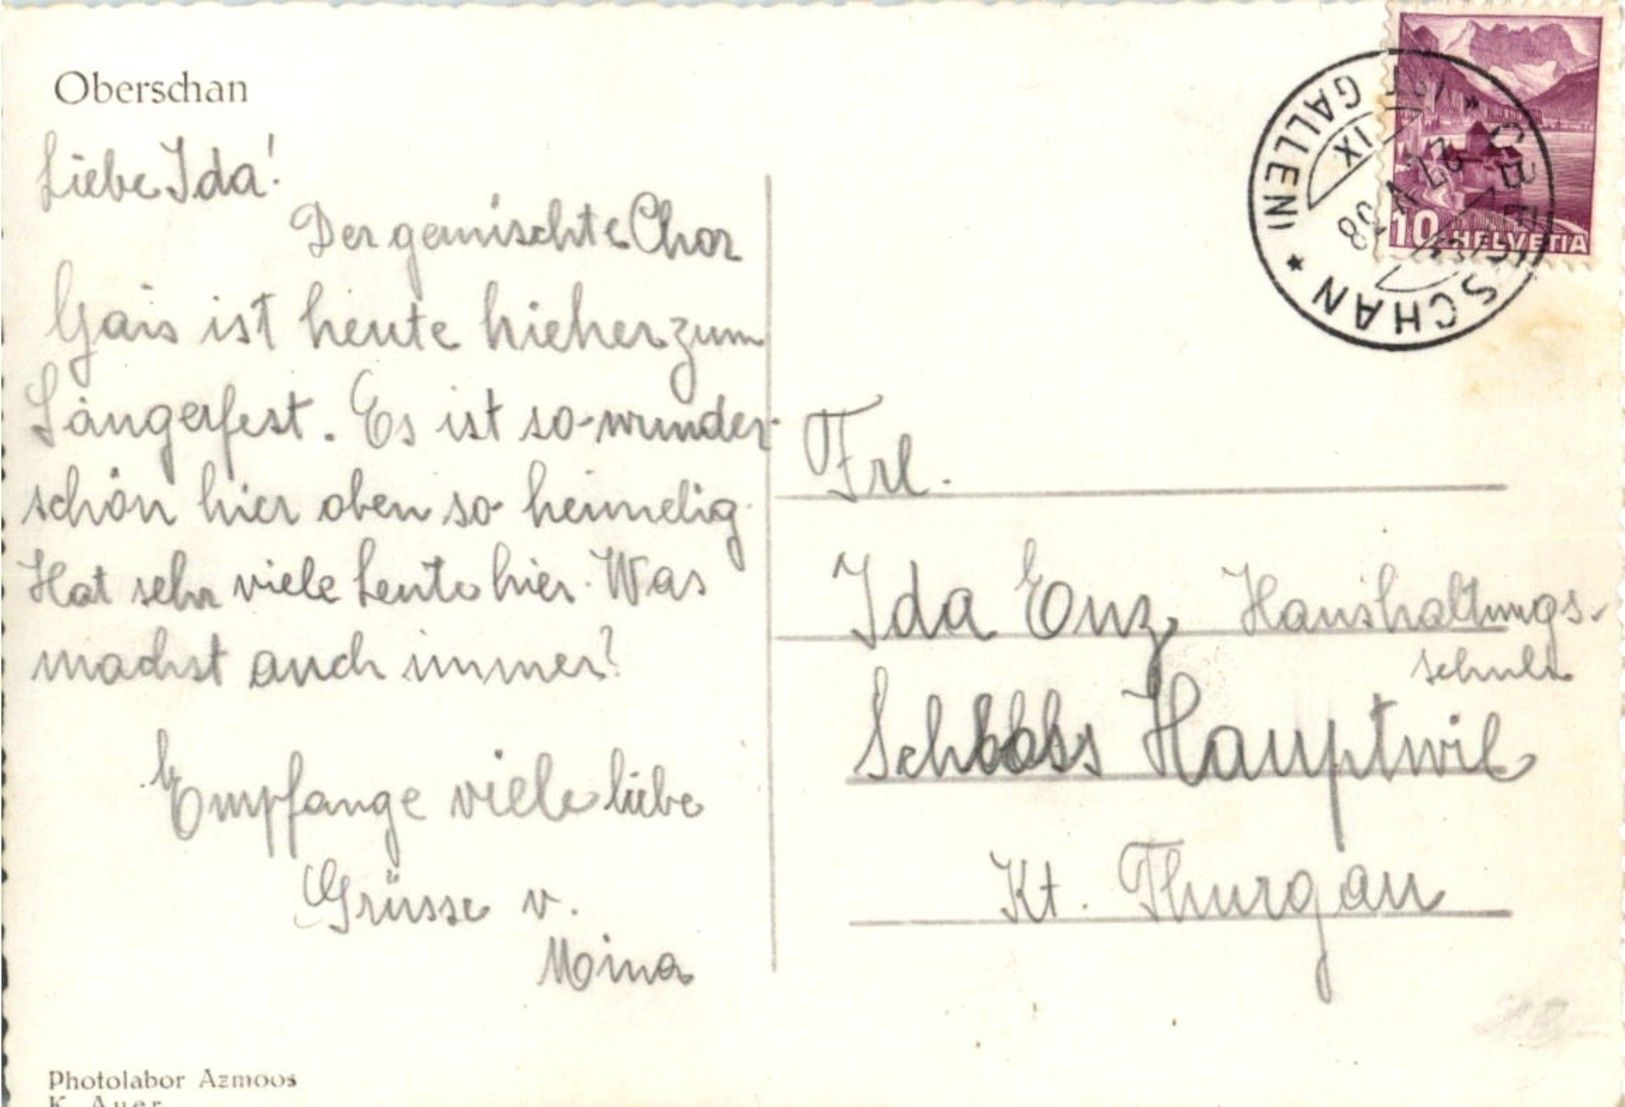 Oberschan
Liebe Ida!
Der gemischte Chor
Gais ist heute hieher zum
Sängerfest. Es ist so wunder-
schön hier oben so heimelig.
Hat sehr viele Leute hier. Was
machst auch immer?
Empfange viele liebe
Grüsse v.
Mina
Photolabor Azmoos
K. Auer
10 HELVETIA
OBERSCHAN
(ST. GALLEN)
22 V 38
IX
Frl.
Ida Enz Haushaltungs-
schule
Schloss Hauptwil
Kt. Thurgau